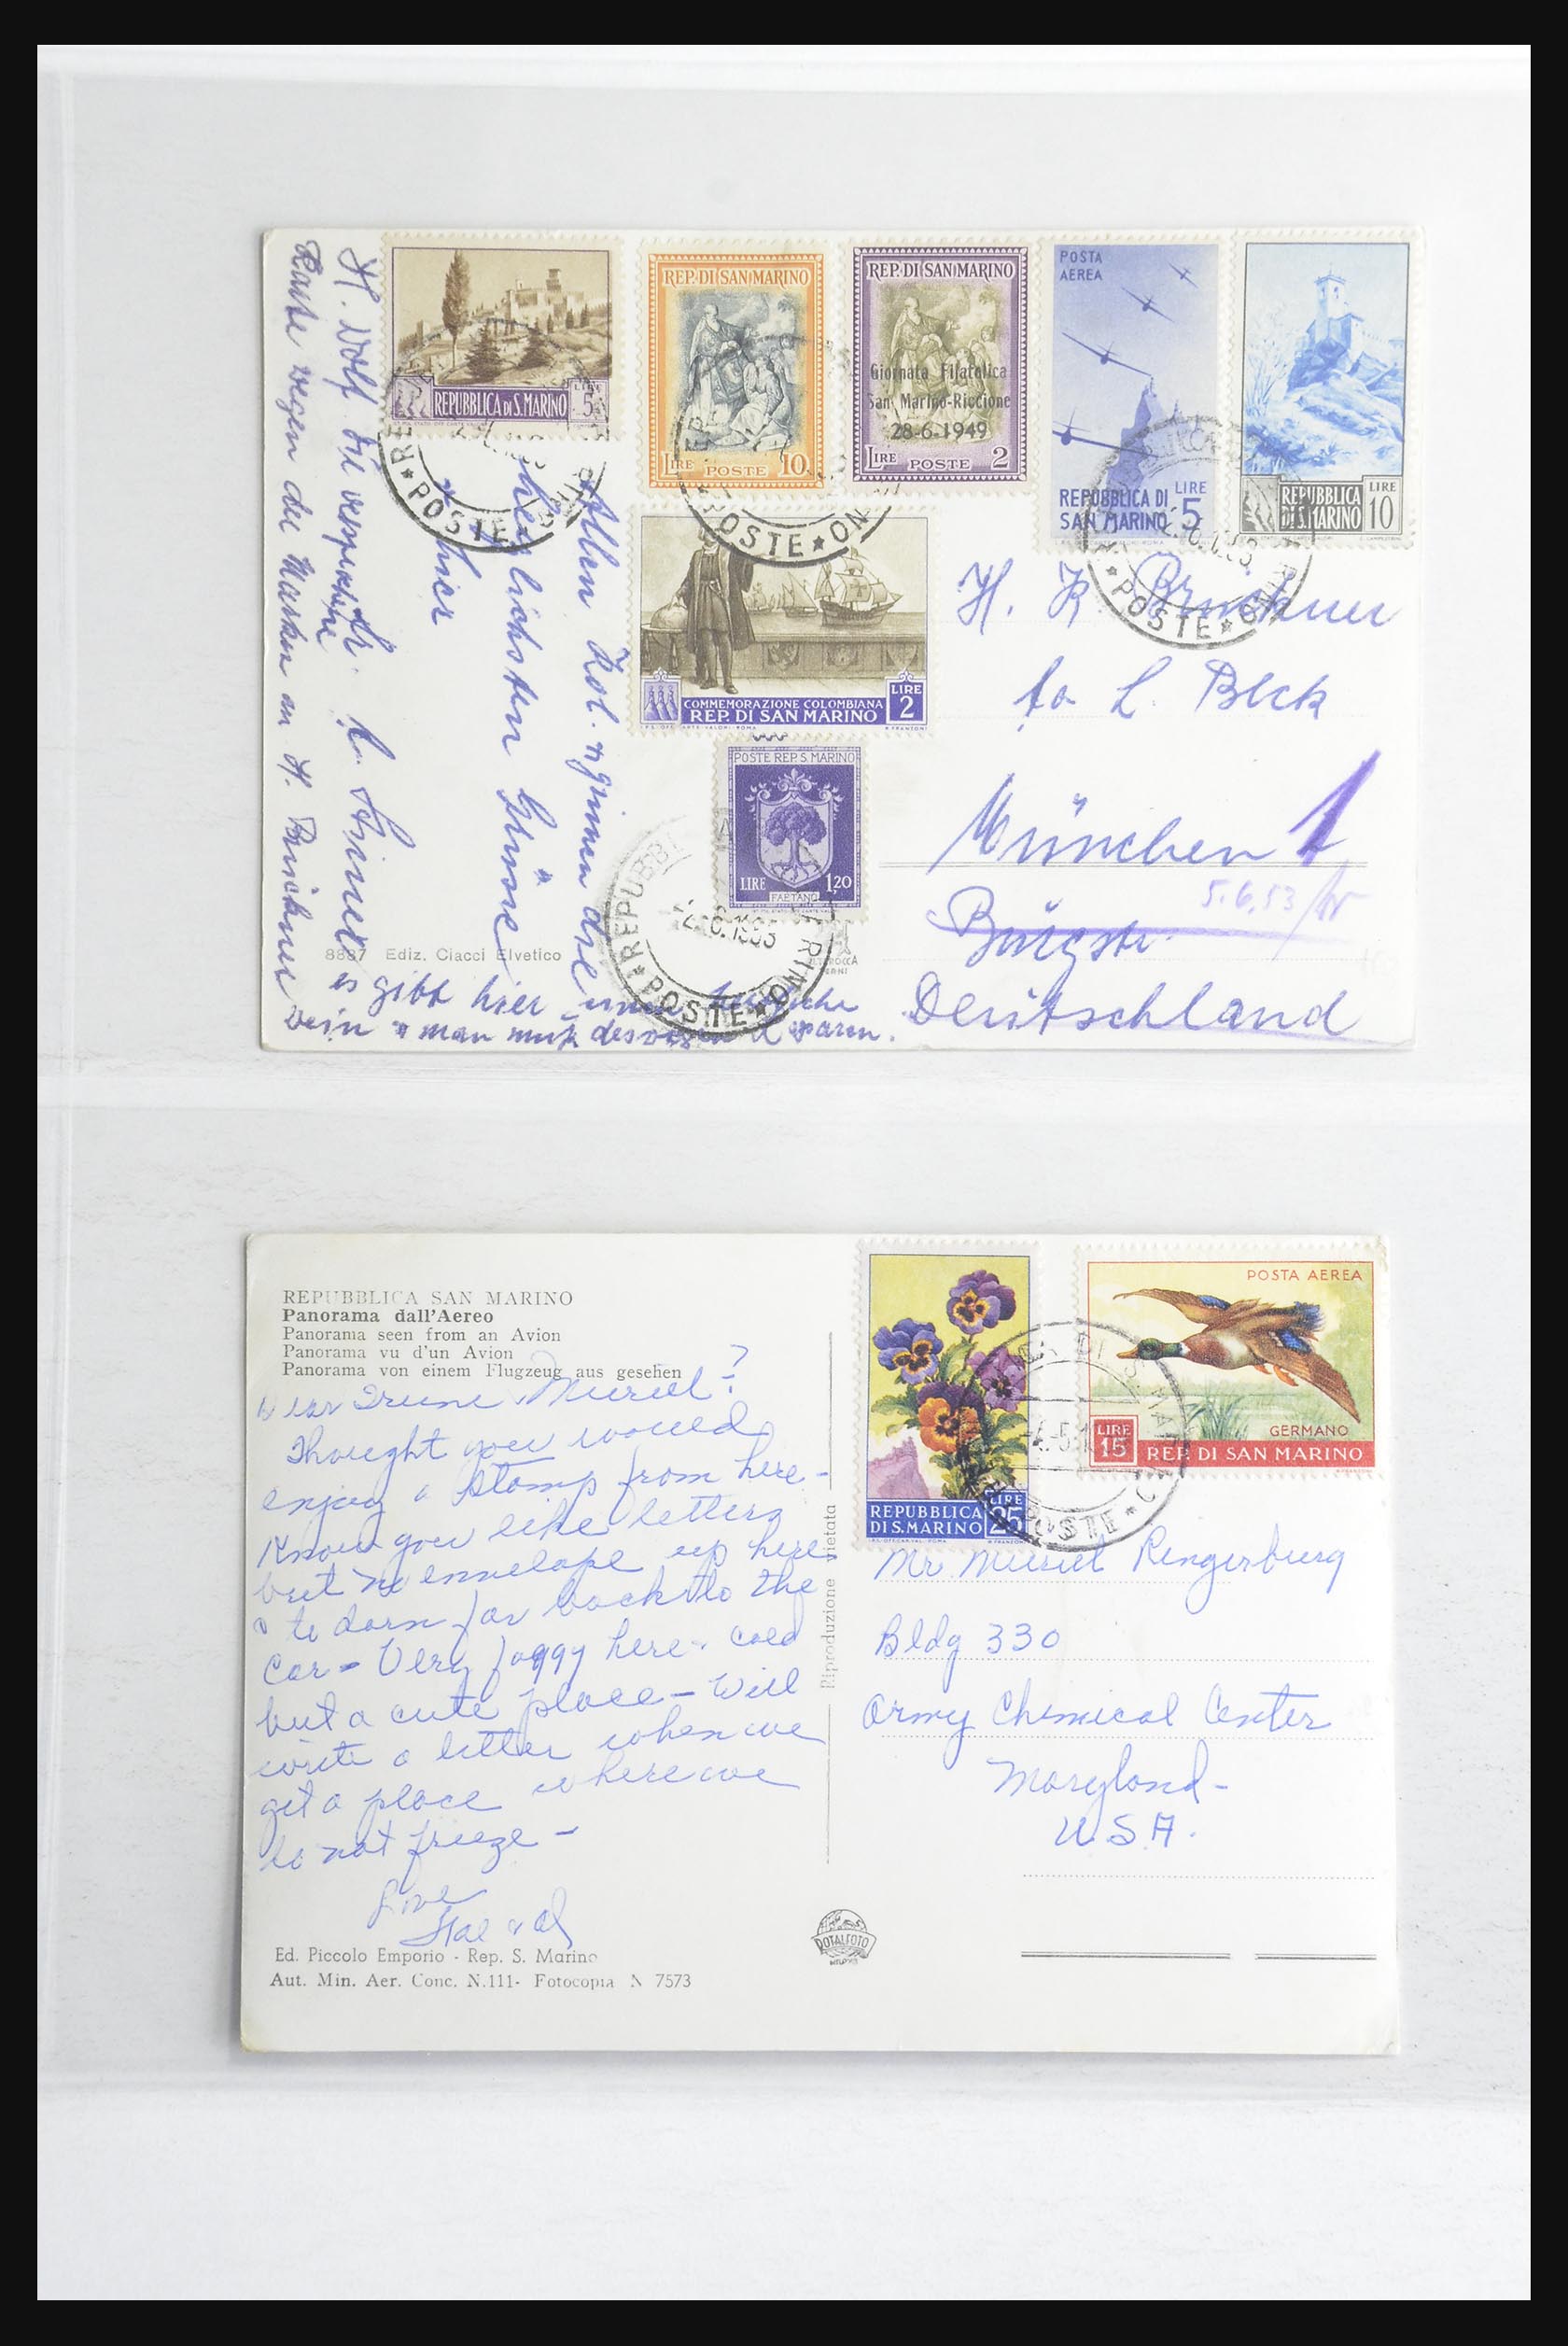 REPUBBLICA DI S. MARINO
LIRE 5
REP. DI SAN MARINO
LIRE POSTE 10
REP. DI SAN MARINO
Giornata Filatelica
San Marino-Riccione
28-6-1949
LIRE POSTE 2
POSTA
AEREA
REPUBBLICA DI
SAN MARINO
LIRE
5
REPUBBLICA
DI S. MARINO
LIRE
10
COMMEMORAZIONE COLOMBIANA
REP. DI SAN MARINO
LIRE
2
POSTE REP. S. MARINO
LIRE 1,20
FAETANO
POSTE
POSTE
POSTE
REPUBBLI
POSTE
H. Wolf
Karte wegen der Marken an H. Brückner
Allen Kol. die
herzlichsten Grüsse
hier
H. K Brückner
L. Beck
München 1
5.6.53
Bürgstr.
Deutschland
8887 Ediz. Ciacci Elvetico
es gibt hier
man muß deswegen sparen.
REPUBBLICA SAN MARINO
Panorama dall'Aereo
Panorama seen from an Avion
Panorama vu d'un Avion
Panorama von einem Flugzeug aus gesehen
Dear Irene, Muriel?
Thought you would
enjoy a stamp from here -
Know you like letters
but no envelope up here
to darn far back to the
car - Very foggy here & cold
but a cute place - Will
write a letter when we
get a place where we
do not freeze -
Love
Hal & Al
Ed. Piccolo Emporio - Rep. S. Marino
Aut. Min. Aer. Conc. N.111- Fotocopia N 7573
Riproduzione vietata
ROTALFOTO
REPUBBLICA
DI S. MARINO
LIRE
25
POSTA AEREA
GERMANO
LIRE
15
REP. DI SAN MARINO
POSTE
Mr Muriel Ringersburg
Bldg 330
Army Chemical Center
Maryland -
U.S.A.